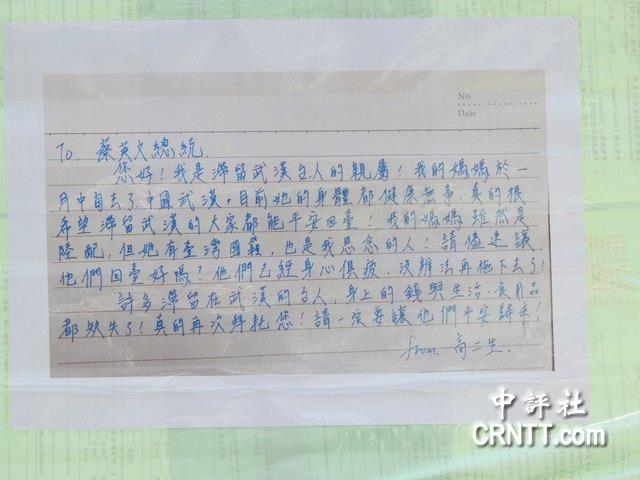 No.
Date
To. 蔡英文總統
您好!我是滯留武漢台人的親屬!我的媽媽於一
月中自去了中國武漢,目前她的身體都健康無事,真的很
希望滯留武漢的大家都能平安回臺!我的媽媽雖然是
陸配,但她有臺灣國籍,也是我思念的人!請儘速讓
他們回臺好嗎?他們已經身心俱疲,沒辦法再拖下去了!
許多滯留在武漢的台人,身上的錢與生活、食用品
都缺失了!真的再次拜託您!請一定要讓他們平安歸來!
from. 高二生.
中評社
CRNTT.com